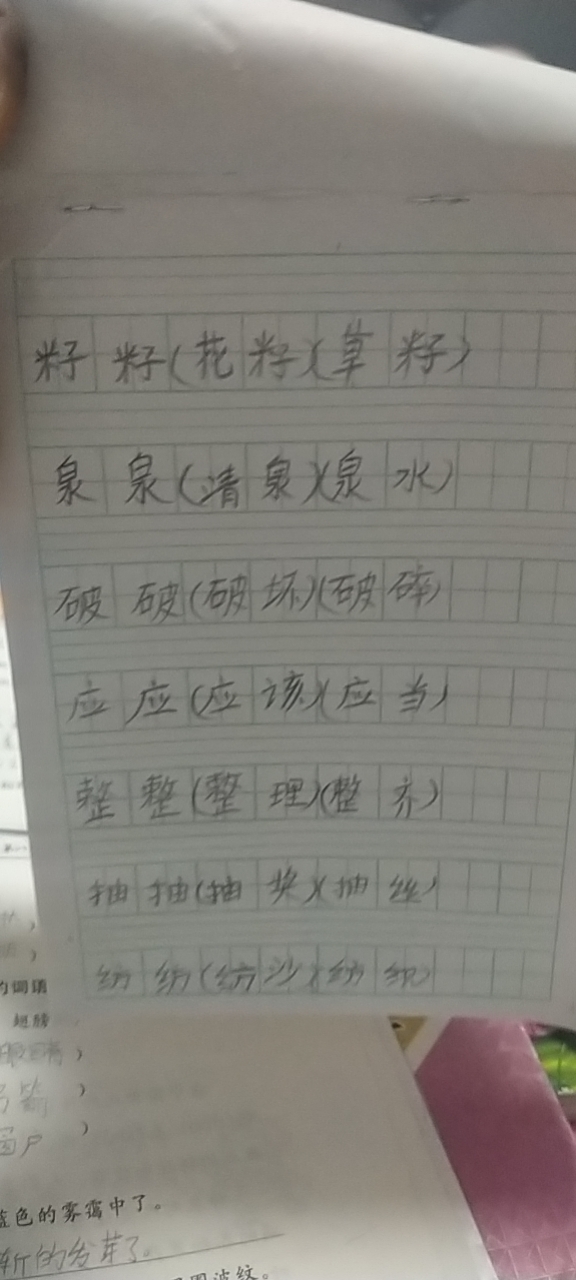 籽 籽(花 籽)(草 籽)
泉 泉(清 泉)(泉 水)
破 破(破 坏)(破 碎)
应 应(应 该)(应 当)
整 整(整 理)(整 齐)
抽 抽(抽 奖)(抽 丝)
纺 纺(纺 沙)(纺 织)
的词语
翅膀
窗户
蓝色的雾霭中了。
的发芽了。
波纹。